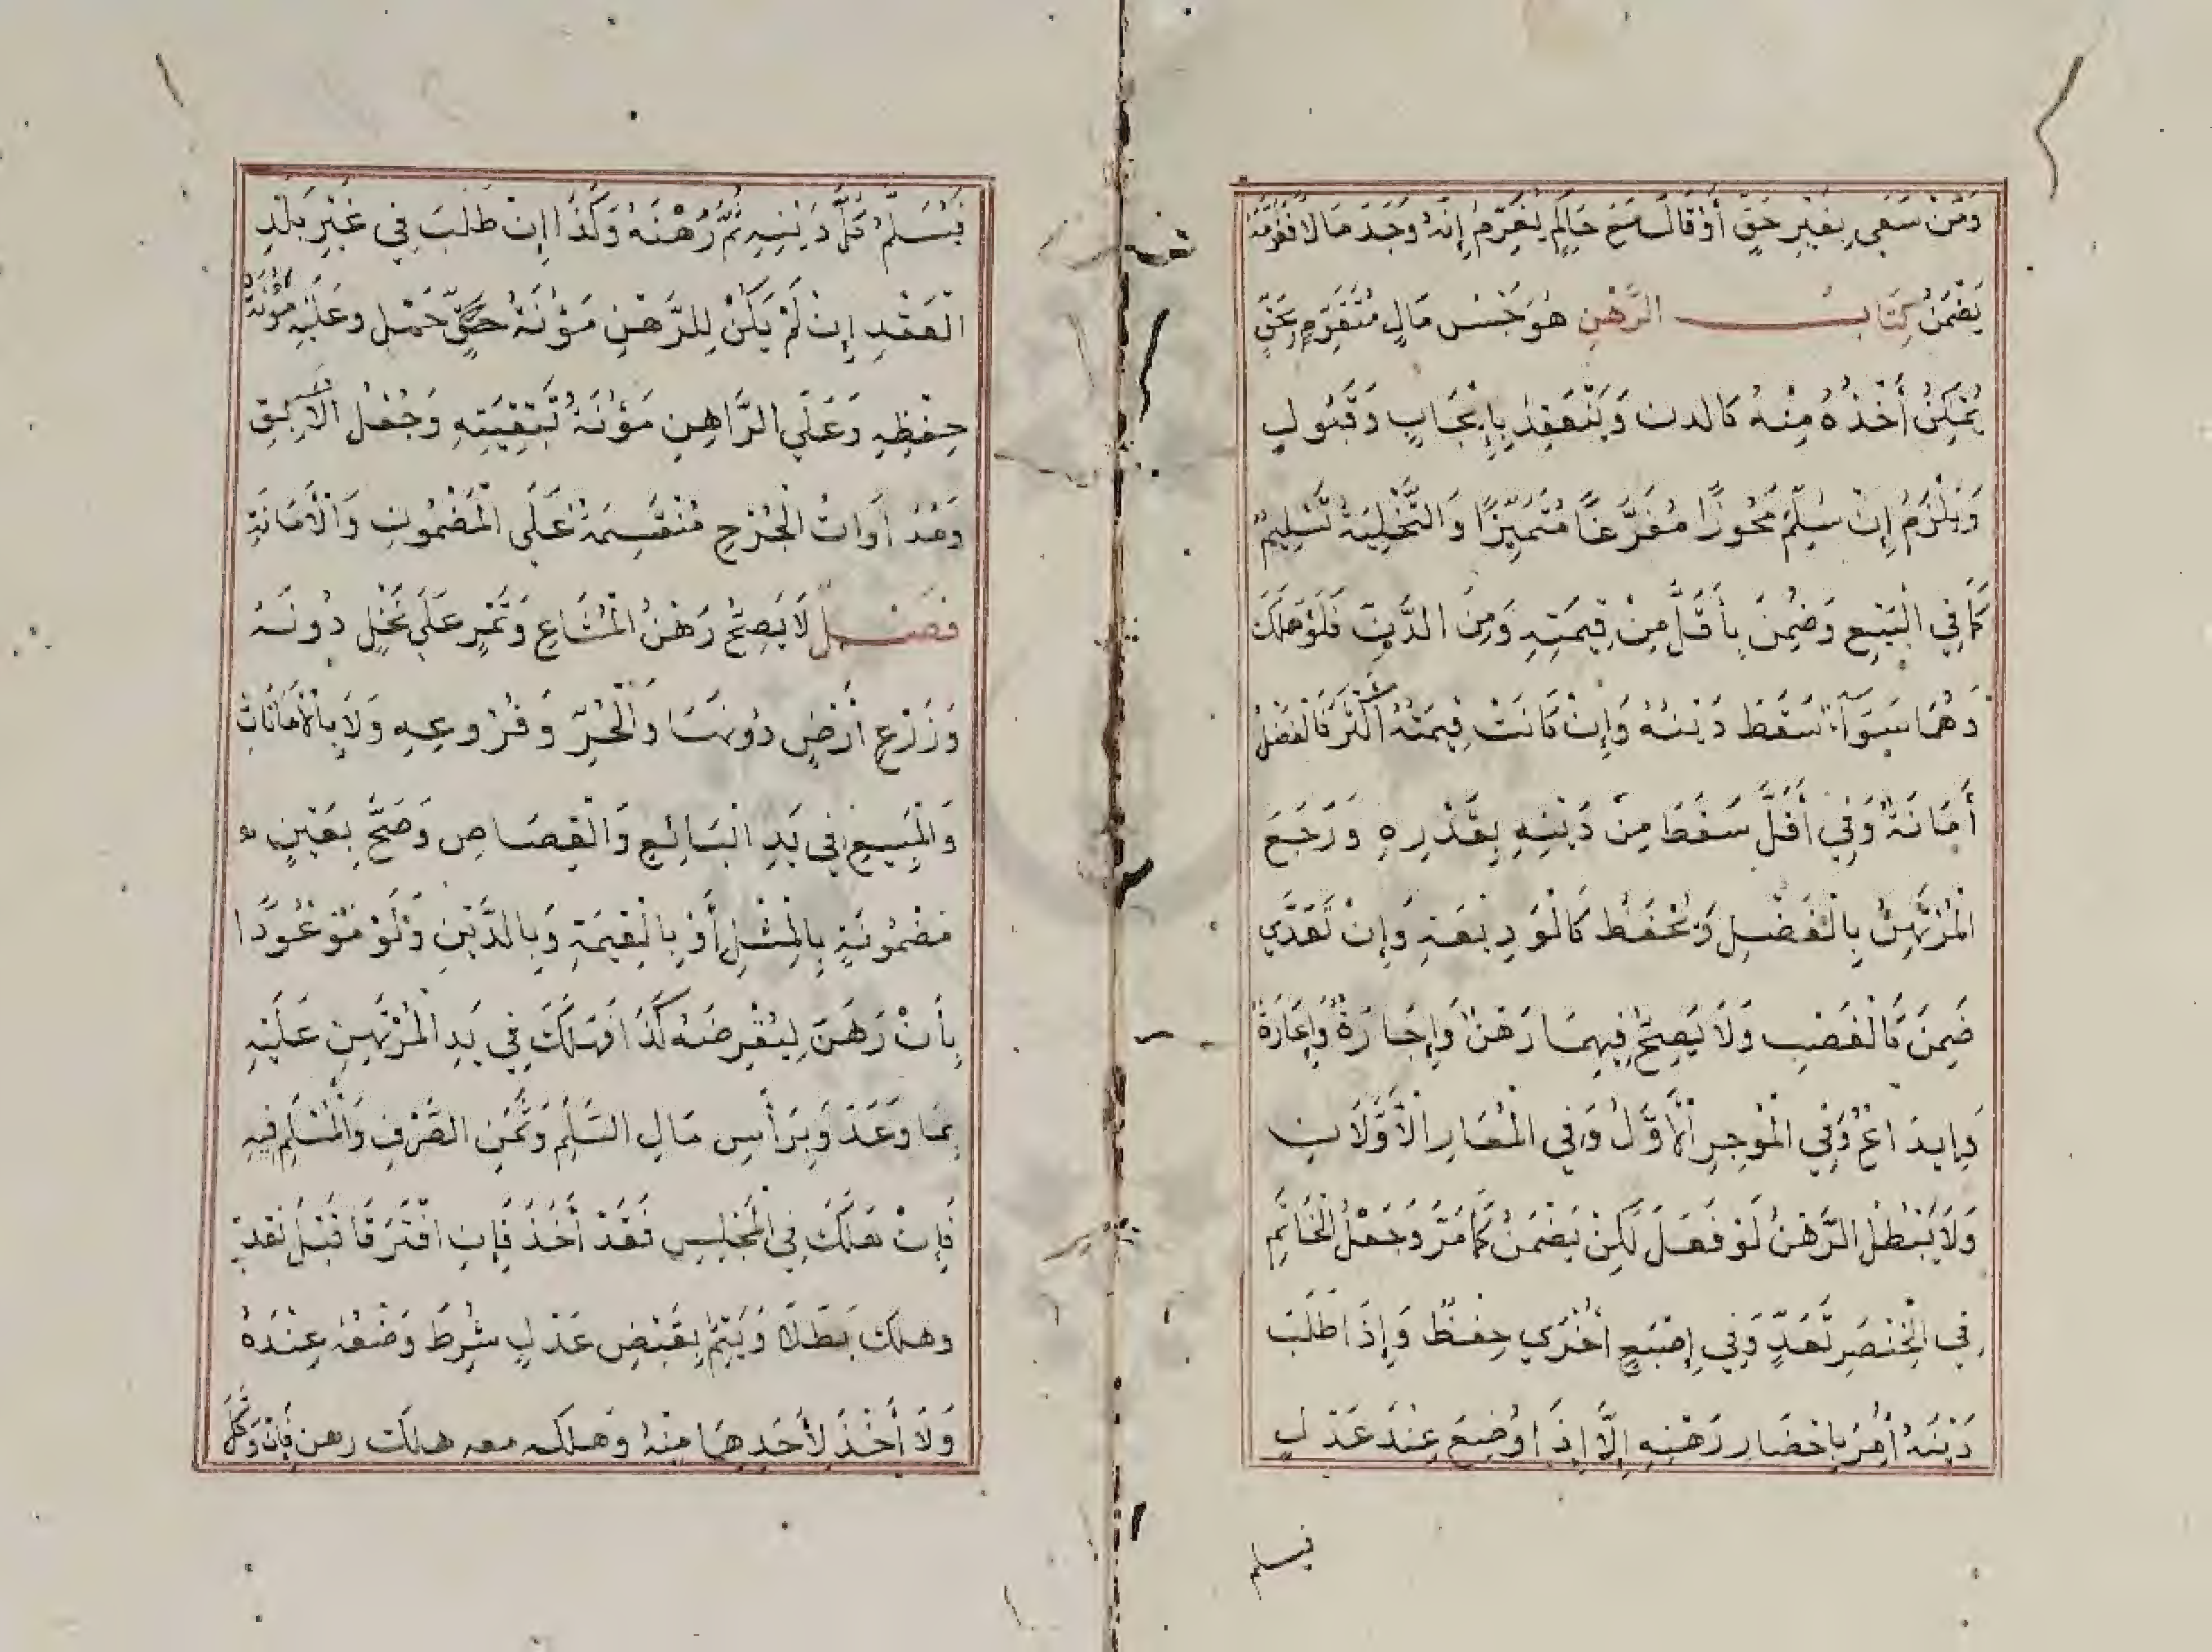 وَمَنْ سَعَى بِغَيْرِ حَقٍّ أَوْ قَالَ مَعَ حَاكِمٍ يُغَرِّمُ إِنَّهُ وَجَدَ مَالًا فَغَرَّمَهُ
يَضْمَنُ كِتَابُ الرَّهْنِ هُوَ حَبْسُ مَالٍ مُتَقَوِّمٍ بِحَقٍّ
يُمْكِنُ أَخْذُهُ مِنْهُ كالدين وَيَنْعَقِدُ بِإِيْجَابٍ وَقَبُولٍ
وَيَلْزَمُ إِنْ سُلِّمَ مَحُوزًا مُفَرَّغًا مُتَمَيِّزًا وَالتَّخْلِيَةُ تَسْلِيمٌ
كَمَا فِي الْبَيْعِ وَضُمِنَ بِأَقَلَّ مِنْ قِيمَتِهِ وَمِنَ الدَّيْنِ فَلَوْ هَلَكَ
وَهُمَا سَوَآءٌ سَقَطَ دَيْنُهُ وَإِنْ كَانَتْ قِيمَتُهُ أَكْثَرَ فَالْفَضْلُ
أَمَانَةٌ وَفِي أَقَلَّ سَقَطَ مِنْ دَيْنِهِ بِقَدْرِهِ وَرَجَعَ
الْمُرْتَهِنُ بِالْفَضْلِ وَيُحْفَظُ كَالْوَدِيْعَةِ وَإِنْ تَعَدَّى
ضَمِنَ كَالْغَصْبِ وَلَا يَصِحُّ فِيهِمَا رَهْنٌ وَإِجَارَةٌ وَإِعَارَةٌ
وَإِيدَاعٌ وَفِي الْمُوجَرِ الْأَوَّلُ وَفِي الْمُعَارِ الْأَوَّلَانِ
وَلَا يَبْطُلُ الرَّهْنُ لَوْ فَعَلَ لَكِنْ يَضْمَنُ كَمَا مَرَّ وَجَعْلُ الْخَاتِمِ
فِي الْخِنْصَرِ تَعَدٍّ وَفِي إِصْبَعٍ أُخْرَى حِفْظٌ وَإِذَا طَلَبَ
دَيْنَهُ أُمِرَ بِإِحْضَارِ رَهْنِهِ إِلَّا إِذَا وُضِعَ عِنْدَ عَدْلٍ
فيسلم
فَيُسَلَّمُ كُلُّ دَيْنِهِ ثُمَّ رَهْنُهُ وَكَذَا إِنْ طَلَبَ فِي غَيْرِ بَلَدِ
الْعَقْدِ إِنْ لَمْ يَكُنْ لِلرَّهْنِ مَؤُنَةُ حَمْلٍ وَعَلَيْهِ مُؤْنَةُ
حِفْظِهِ وَعَلَى الرَّاهِنِ مَؤُنَةُ تَبْقِيَتِهِ وَجُعْلُ الْآبِقِ
وَمُدَاوَاتُ الْجُرْحِ مُنْقَسِمَةٌ عَلَى الْمَضْمُونِ وَالْأَمَانَةِ
فَصْلٌ لَا يَصِحُّ رَهْنُ الْمُشَاعِ وَثَمَرٍ عَلَى نَخْلٍ دُونَهُ
وَزَرْعِ أَرْضٍ دُونَهَا وَالْحُرِّ وَفُرُوعِهِ وَلَا بِالْأَمَانَاتِ
وَالْمَبِيعِ فِي يَدِ الْبَائِعِ وَالْقِصَاصِ وَصَحَّ بِعَيْنٍ
مَضْمُونَةٍ بِالْمِثْلِ أَوْ بِالْقِيمَةِ وَبِالدَّيْنِ وَلَوْ مَوْعُودًا
بِأَنْ رَهَنَ لِيُقْرِضَهُ كَذَا فَهَلَكَ فِي يَدِ الْمُرْتَهِنِ عَلَيْهِ
بِمَا وَعَدَ وَبِرَأْسِ مَالِ السَّلَمِ وَثَمَنِ الصَّرْفِ وَالْمُسْلَمِ فِيهِ
فَإِنْ هَلَكَ فِي الْمَجْلِسِ فَقَدْ أَخَذَ فَإِنِ افْتَرَقَا قَبْلَ نَقْدٍ
وهلك بَطَلَا وَيَتِمُّ بِقَبْضِ عَدْلٍ شُرِطَ وَضْعُهُ عِنْدَهُ
وَلَا أَخْذَ لِأَحَدِهِمَا مِنْهُ وَهلكه معه هلك رهن فَإِنْ وَكَّلَ